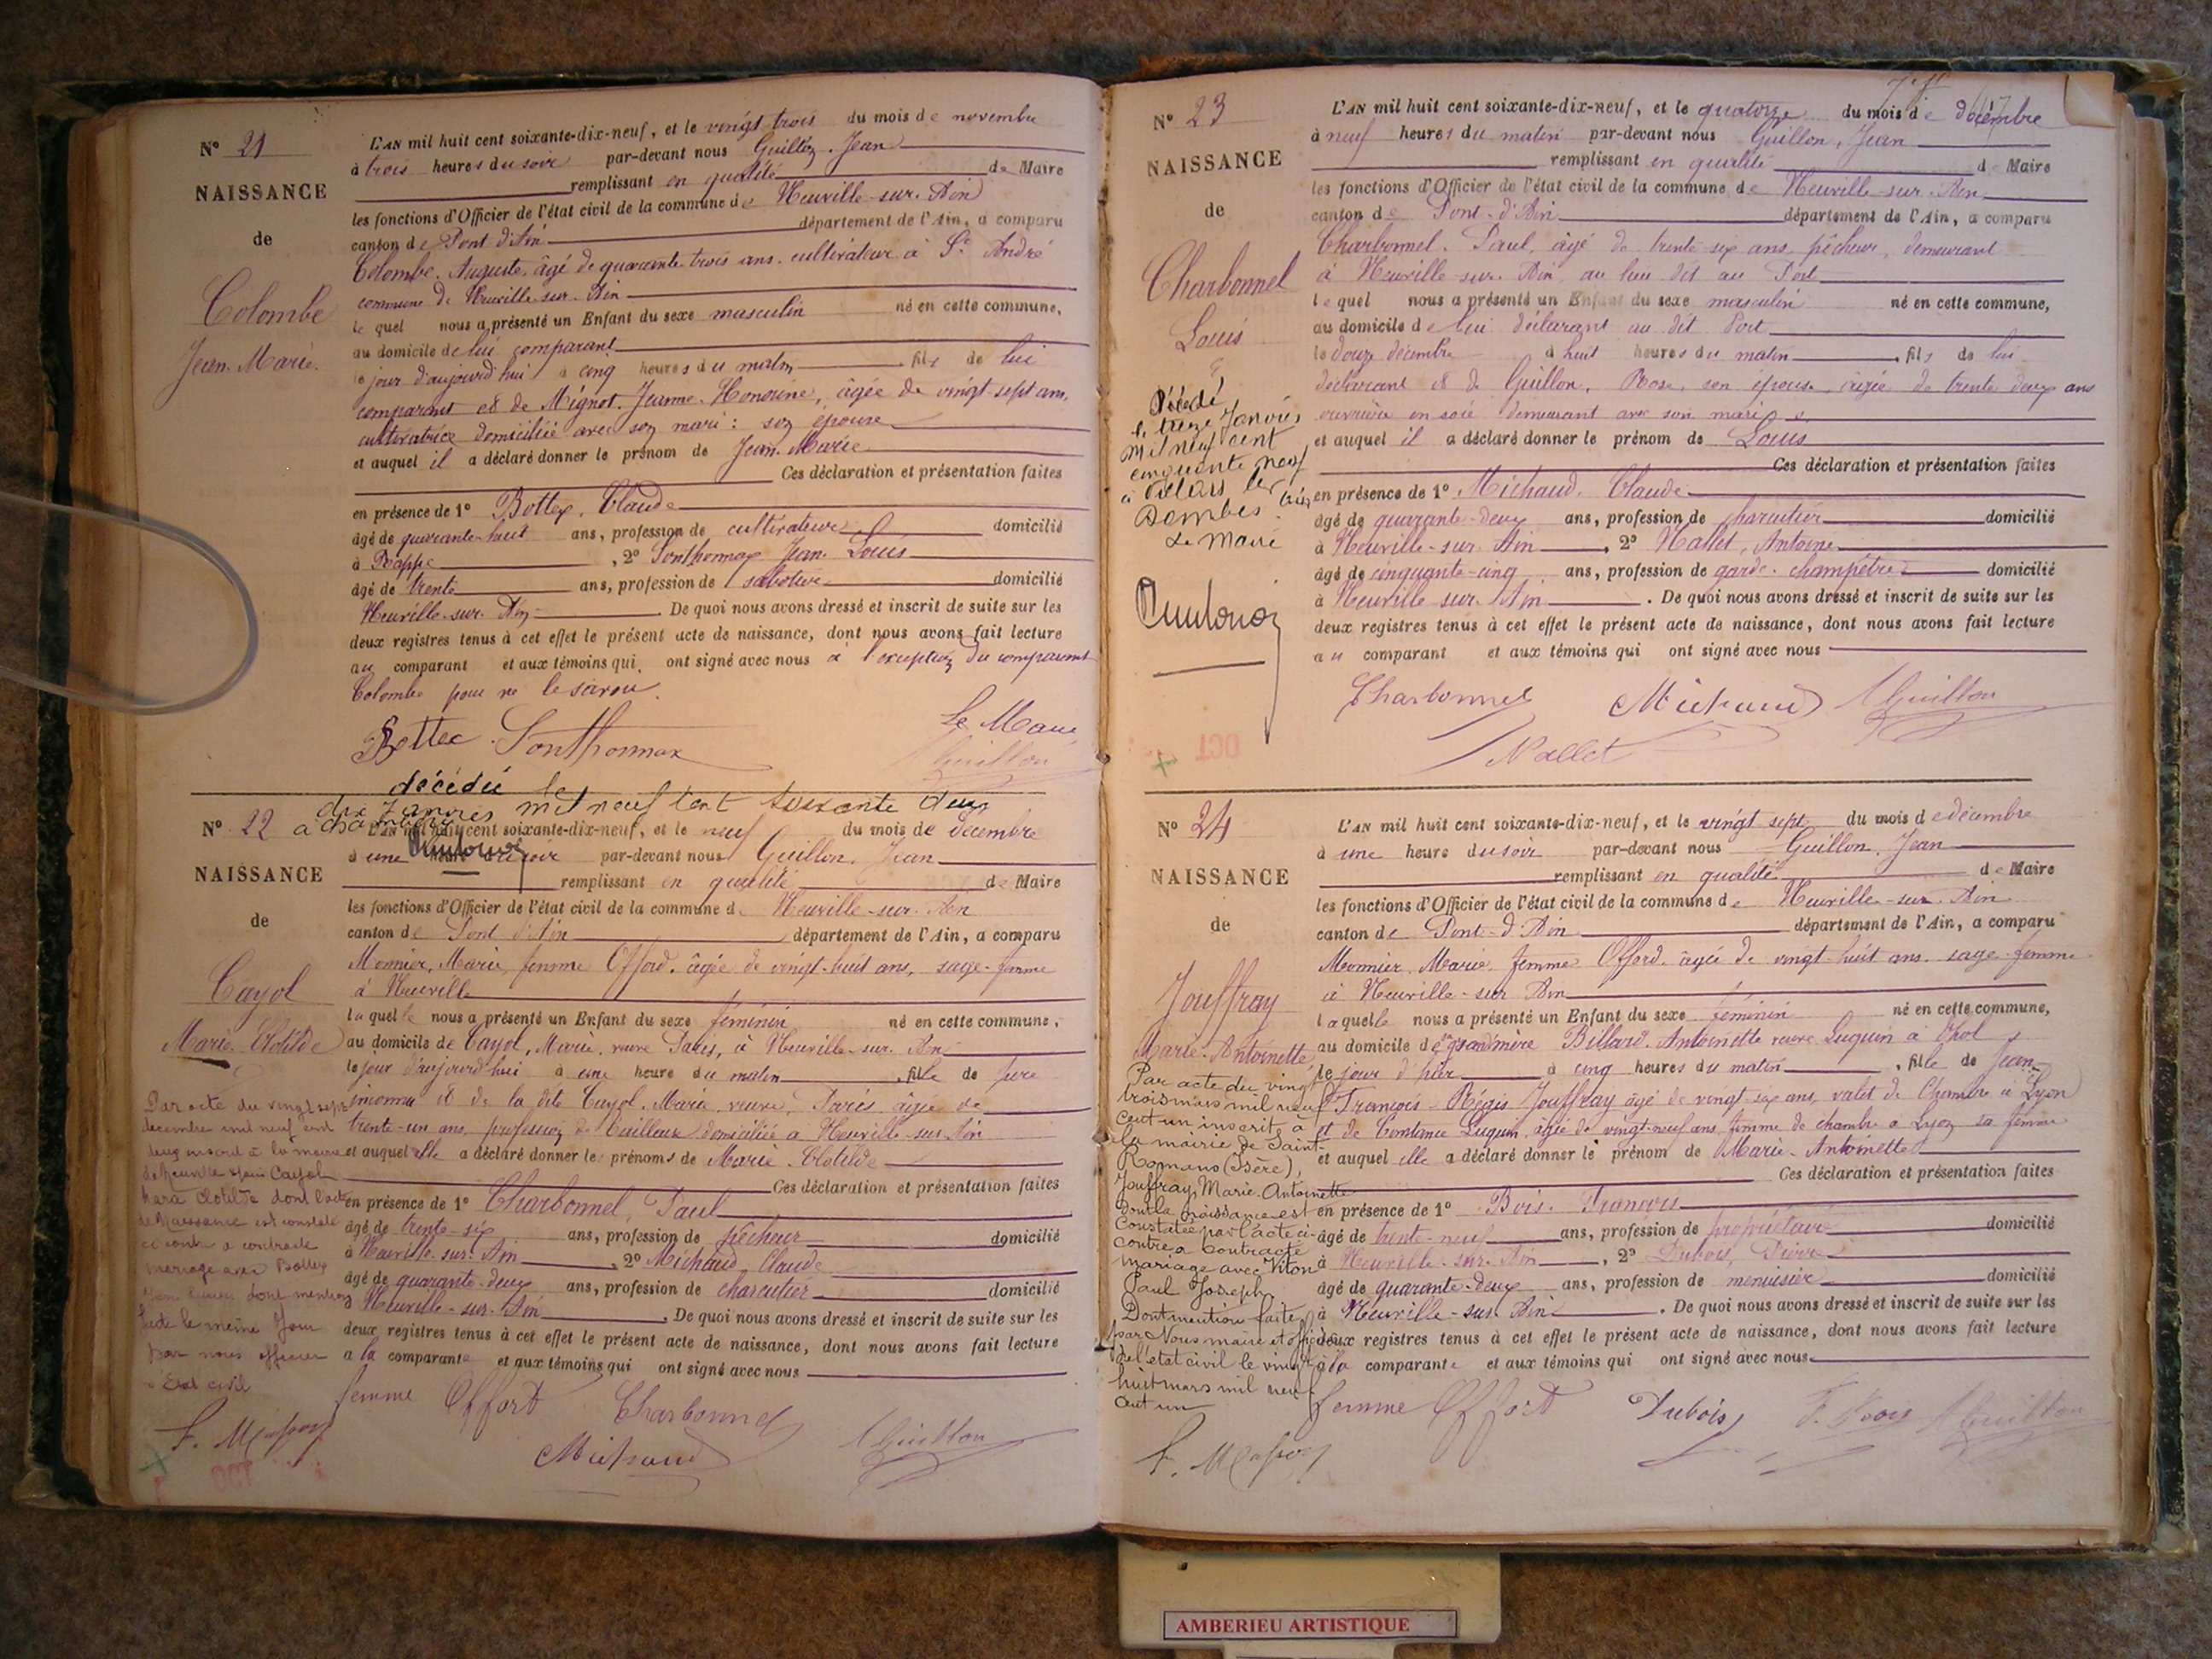 N° 21
NAISSANCE
de
Colombe
Jean-Marie.
L'AN mil huit cent soixante-dix-neuf, et le vingt trois du mois de novembre
à trois heures du soir par-devant nous Guillon, Jean
remplissant en qualité de Maire
les fonctions d'Officier de l'état civil de la commune de Neuville-sur-Ain
canton de Pont-d'Ain département de l'Ain, a comparu
Colombe, Auguste, âgé de quarante-trois ans, cultivateur à St André
commune de Neuville-sur-Ain
lequel nous a présenté un Enfant du sexe masculin né en cette commune,
au domicile de lui comparant
le jour d'aujourd'hui à cinq heures du matin fils de lui
comparant et de Mignot, Jeanne-Honorine, âgée de vingt-sept ans,
cultivatrice domiciliée avec son mari : son épouse
et auquel il a déclaré donner le prénom de Jean-Marie
Ces déclaration et présentation faites
en présence de 1° Bottex, Claude
âgé de quarante-huit ans, profession de cultivateur domicilié
à Rappe, 2° Sonthonnax Jean-Louis
âgé de trente ans, profession de sabotier domicilié
Neuville-sur-Ain. De quoi nous avons dressé et inscrit de suite sur les
deux registres tenus à cet effet le présent acte de naissance, dont nous avons fait lecture
au comparant et aux témoins qui ont signé avec nous à l'exception du comparant
Colombe pour ne le savoir.
Bottex Sonthonnax Le Maire
Guillon
décédée le
dix Janvier mil neuf cent soixante deux
N° 22
NAISSANCE
de
Cayol
Marie-Clotilde
L'AN mil huit cent soixante-dix-neuf, et le neuf du mois de décembre
à une heure du soir par-devant nous Guillon, Jean
remplissant en qualité de Maire
les fonctions d'Officier de l'état civil de la commune de Neuville-sur-Ain
canton de Pont d'Ain département de l'Ain, a comparu
Monnier, Marie, femme Offord, âgée de vingt-huit ans, sage-femme
à Neuville
laquelle nous a présenté un Enfant du sexe féminin né en cette commune,
au domicile de Cayol, Marie, veuve Sarès, à Neuville-sur-Ain
le jour d'aujourd'hui à une heure du matin, fille de père
inconnu et de la dite Cayol, Marie, veuve, âgée de
trente-un ans, profession de tailleuse domiciliée à Neuville-sur-Ain
et auquel elle a déclaré donner les prénoms de Marie-Clotilde
Ces déclaration et présentation faites
en présence de 1° Charbonnel, Paul
âgé de trente-six ans, profession de pêcheur domicilié
à Neuville-sur-Ain, 2° Michaud, Claude
âgé de quarante-deux ans, profession de charcutier domicilié
Neuville-sur-Ain. De quoi nous avons dressé et inscrit de suite sur les
deux registres tenus à cet effet le présent acte de naissance, dont nous avons fait lecture
à la comparante et aux témoins qui ont signé avec nous
femme Offort Charbonnel
Michaud Guillon
Par acte du vingt sept
décembre mil neuf cent
deux inscrit à la mairie
de Neuville Cayol
Marie Clotilde dont l'acte
de Naissance est constaté
ci contre a contracté
mariage avec Bottex
dont mention
faite le même jour
par nous officier
Etat civil
N° 23
NAISSANCE
de
Charbonnel
Louis
L'AN mil huit cent soixante-dix-neuf, et le quatorze du mois de décembre
à neuf heures du matin par-devant nous Guillon, Jean
remplissant en qualité de Maire
les fonctions d'Officier de l'état civil de la commune de Neuville-sur-Ain
canton de Pont-d'Ain département de l'Ain, a comparu
Charbonnel, Paul, âgé de trente-six ans, pêcheur, demeurant
à Neuville-sur-Ain, au lieu dit au Port
lequel nous a présenté un Enfant du sexe masculin né en cette commune,
au domicile de lui déclarant au dit Port
le douze décembre à huit heures du matin, fils de lui
déclarant et de Guillon, Rose, son épouse, âgée de trente deux ans
ouvrière en soie demeurant avec son mari
et auquel il a déclaré donner le prénom de Louis
Ces déclaration et présentation faites
en présence de 1° Michaud, Claude
âgé de quarante-deux ans, profession de charcutier domicilié
à Neuville-sur-Ain, 2° Nallet, Antoine
âgé de cinquante-cinq ans, profession de garde-champêtre domicilié
à Neuville sur Ain. De quoi nous avons dressé et inscrit de suite sur les
deux registres tenus à cet effet le présent acte de naissance, dont nous avons fait lecture
au comparant et aux témoins qui ont signé avec nous
Charbonnel Michaud Guillon
Nallet
Décédé
le treize Janvier
mil neuf cent
cinquante neuf
à Villars les
Dombes Ain
Le Maire
N° 24
NAISSANCE
de
Jouffray
Marie-Antoinette
L'AN mil huit cent soixante-dix-neuf, et le vingt sept du mois de décembre
à une heure du soir par-devant nous Guillon, Jean
remplissant en qualité de Maire
les fonctions d'Officier de l'état civil de la commune de Neuville-sur-Ain
canton de Pont-d'Ain département de l'Ain, a comparu
Monnier, Marie, femme Offord, âgée de vingt-huit ans, sage-femme
à Neuville-sur-Ain
laquelle nous a présenté un Enfant du sexe féminin né en cette commune,
au domicile de sa grand'mère Billard, Antoinette veuve Luguin à
le jour d'hier à cinq heures du matin, fille de Jean-
François-Régis Jouffray âgé de vingt-six ans, valet de Chambre à Lyon
et de Constance Luguin, âgée de vingt-neuf ans, femme de chambre à Lyon, sa femme
et auquel elle a déclaré donner le prénom de Marie-Antoinette
Ces déclaration et présentation faites
en présence de 1° Bois, François
âgé de trente-neuf ans, profession de propriétaire domicilié
à Neuville-sur-Ain, 2° Dubois, Pierre
âgé de quarante-deux ans, profession de menuisier domicilié
à Neuville-sur-Ain. De quoi nous avons dressé et inscrit de suite sur les
deux registres tenus à cet effet le présent acte de naissance, dont nous avons fait lecture
à la comparante et aux témoins qui ont signé avec nous
femme Offort Dubois F. Bois Guillon
Par acte du vingt
trois mars mil neuf
cent un inscrit à
la mairie de Saint-
Romans (Isère),
Jouffray Marie-Antoinette
dont la naissance est
constatée par l'acte ci-
contre a contracté
mariage avec Viton
Paul Joseph.
Dont mention faite
par Nous maire et officier
de l'état civil le vingt
huit mars mil neuf
cent un
OCT
AMBERIEU ARTISTIQUE